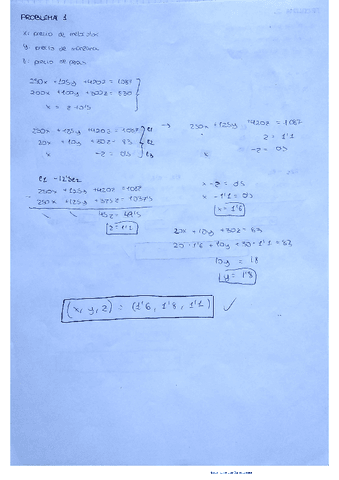 PROBLEMA 1
x: precio de
y: precio de manzana
z: precio de peras
250x + 125y + 420z = 1087
200x + 100y + 300z = 830
x = z + 0'5
250x + 125y + 420z = 1087 e1 → 250x + 125y + 420z = 1087
20x + 10y + 30z = 83 e2 z = 1'1
x -z = 0'5 e3 x -z = 0'5
e1 - 12'5e2
250x + 125y + 420z = 1087
250x + 125y + 375z = 1037'5
45z = 49'5
z = 1'1
x - z = 0'5
x - 1'1 = 0'5
x = 1'6
20x + 10y + 30z = 83
20 · 1'6 + 10y + 30 · 1'1 = 83
10y = 18
y = 1'8
(x, y, z) = (1'6, 1'8, 1'1) ✓